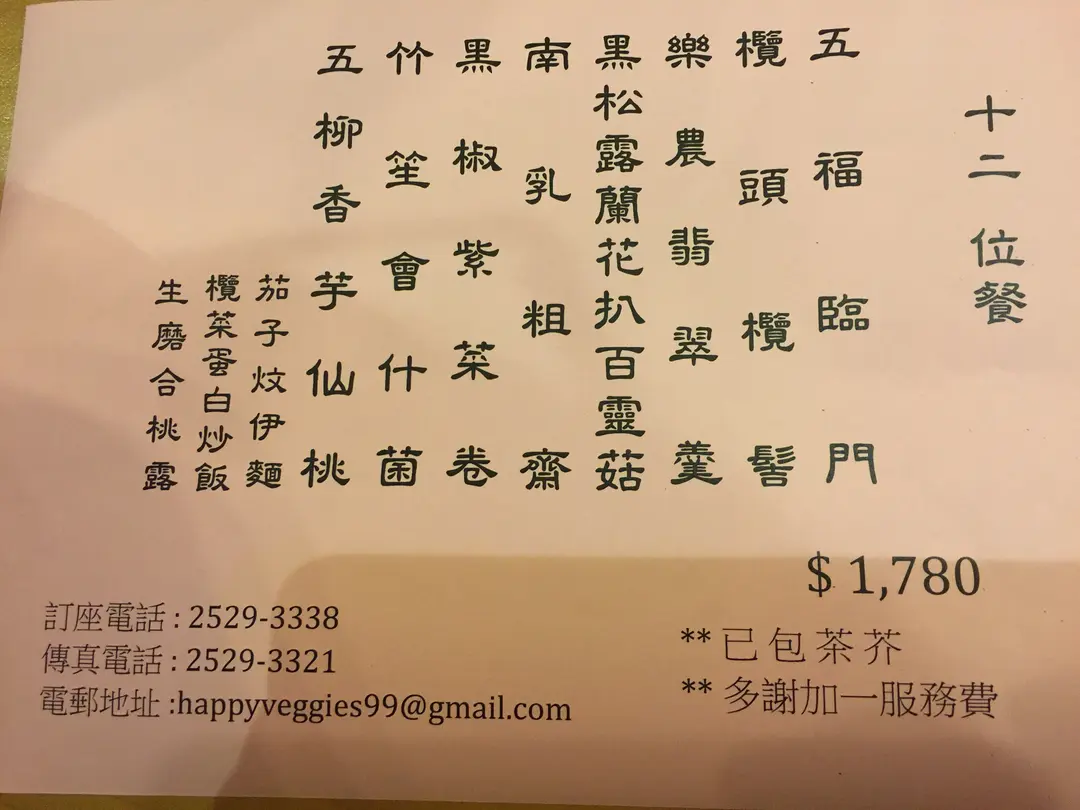 十二位餐
五福臨門
欖頭欖髻
樂農翡翠羹
黑松露蘭花扒百靈菇
南乳粗齋
黑椒紫菜卷
竹笙會什菌
五柳香芋仙桃
茄子炆伊麵
欖菜蛋白炒飯
生磨合桃露
$ 1,780
** 已包茶芥
** 多謝加一服務費
訂座電話 : 2529-3338
傳真電話 : 2529-3321
電郵地址 :happyveggies99@gmail.com